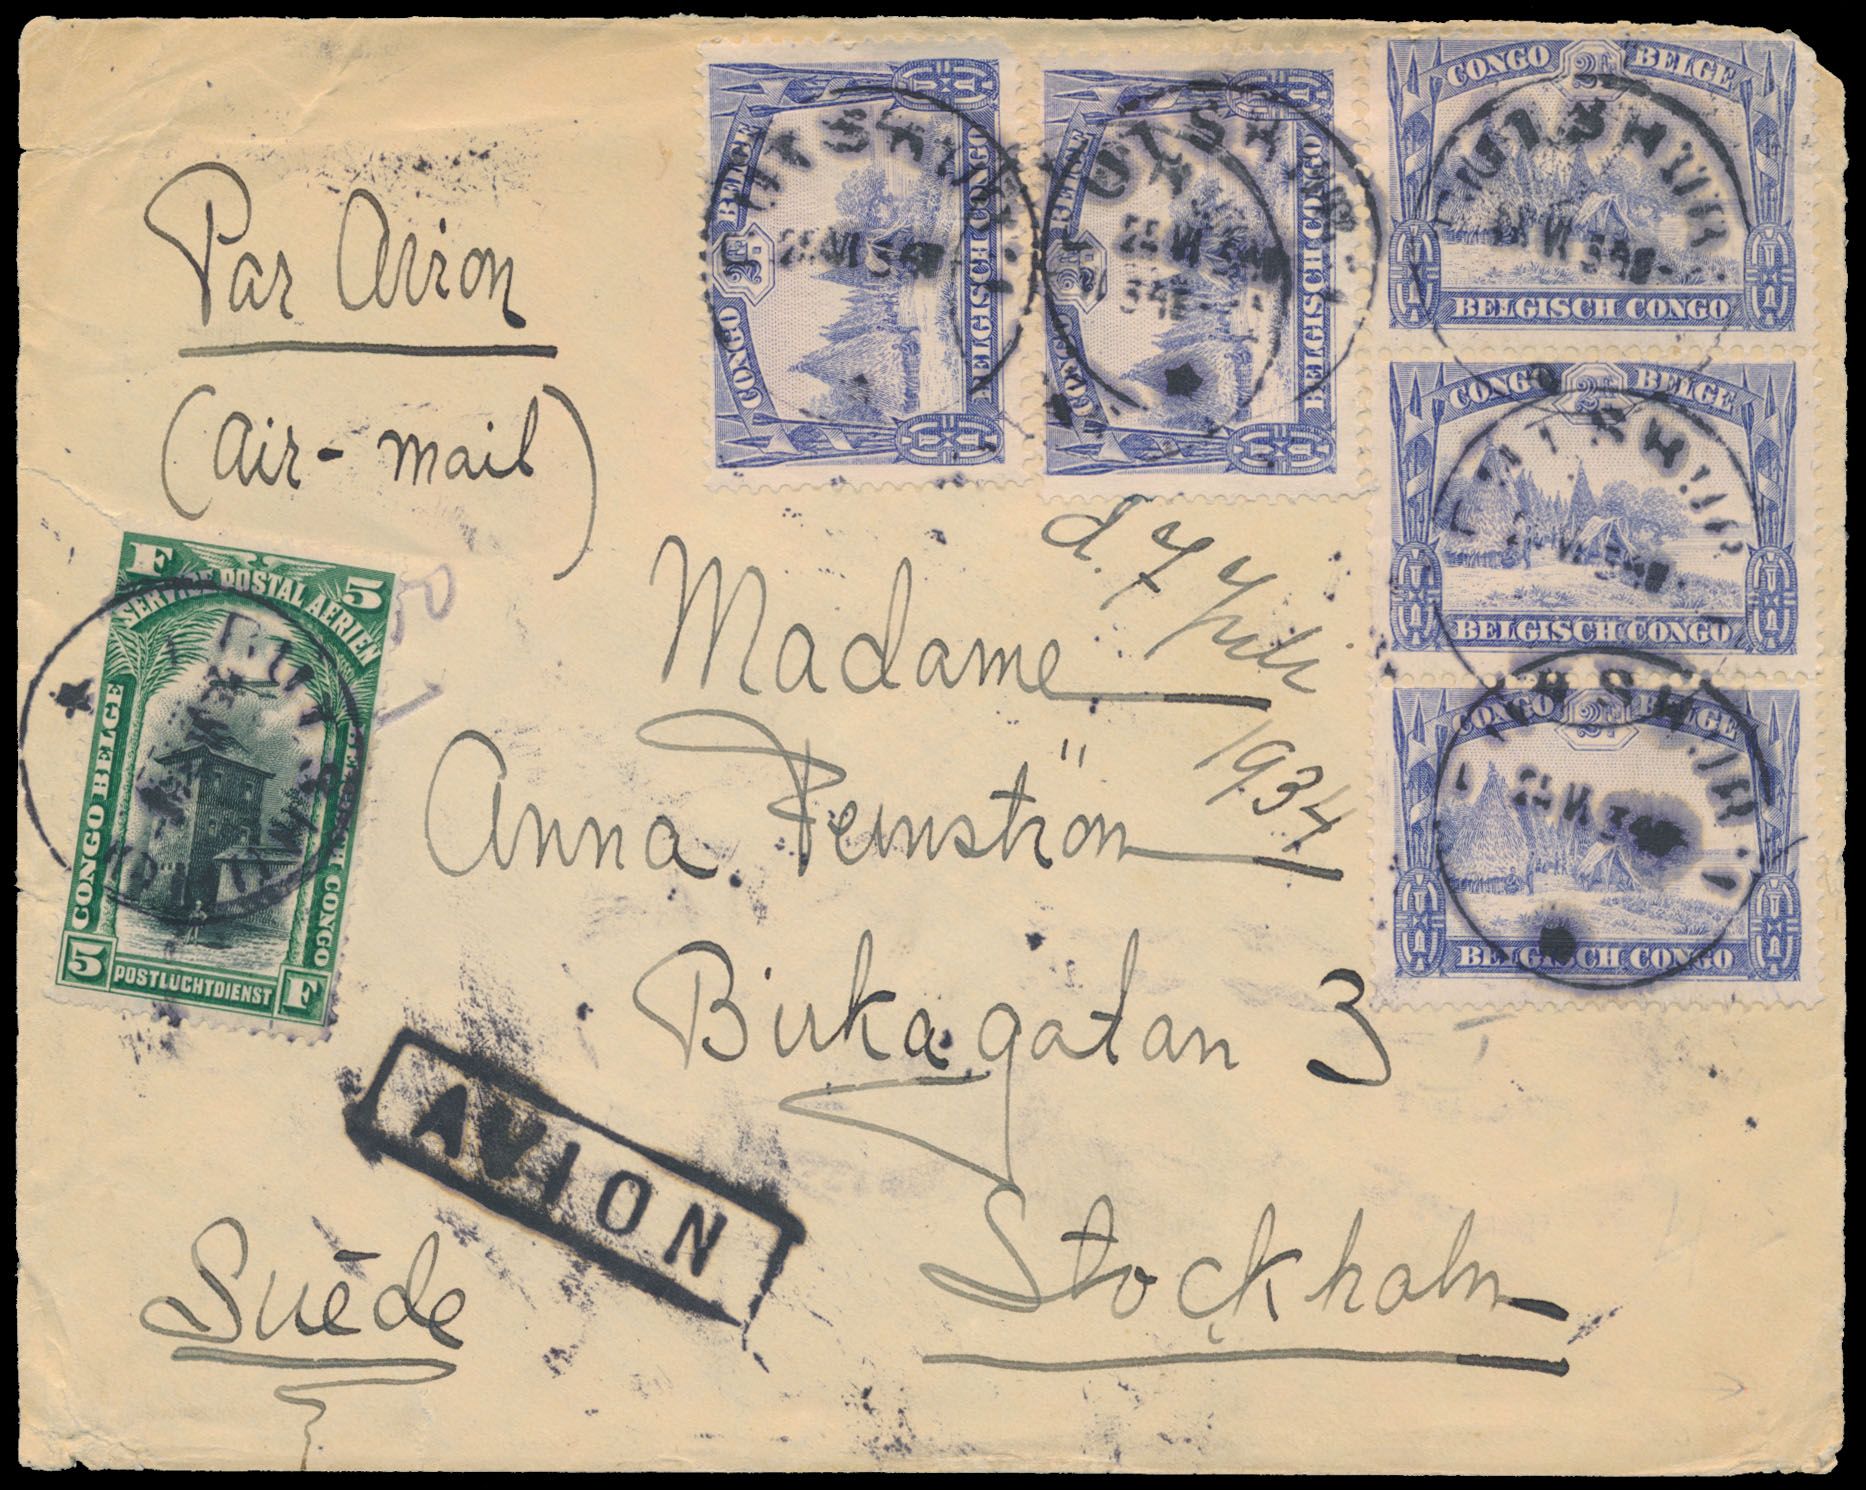 Par Avion
(air-mail)
CONGO BELGE
BELGISCH CONGO
CONGO BELGE
BELGISCH CONGO
CONGO BELGE
2F
BELGISCH CONGO
CONGO BELGE
2F
BELGISCH CONGO
CONGO BELGE
2F
BELGISCH CONGO
F 5
SERVICE POSTAL AÉRIEN
CONGO BELGE
BELGISCH CONGO
5 POSTLUCHTDIENST F
d. 7 Juli
1934
Madame
Anna
Birkagatan 3
Stockholm
Suède
AVION